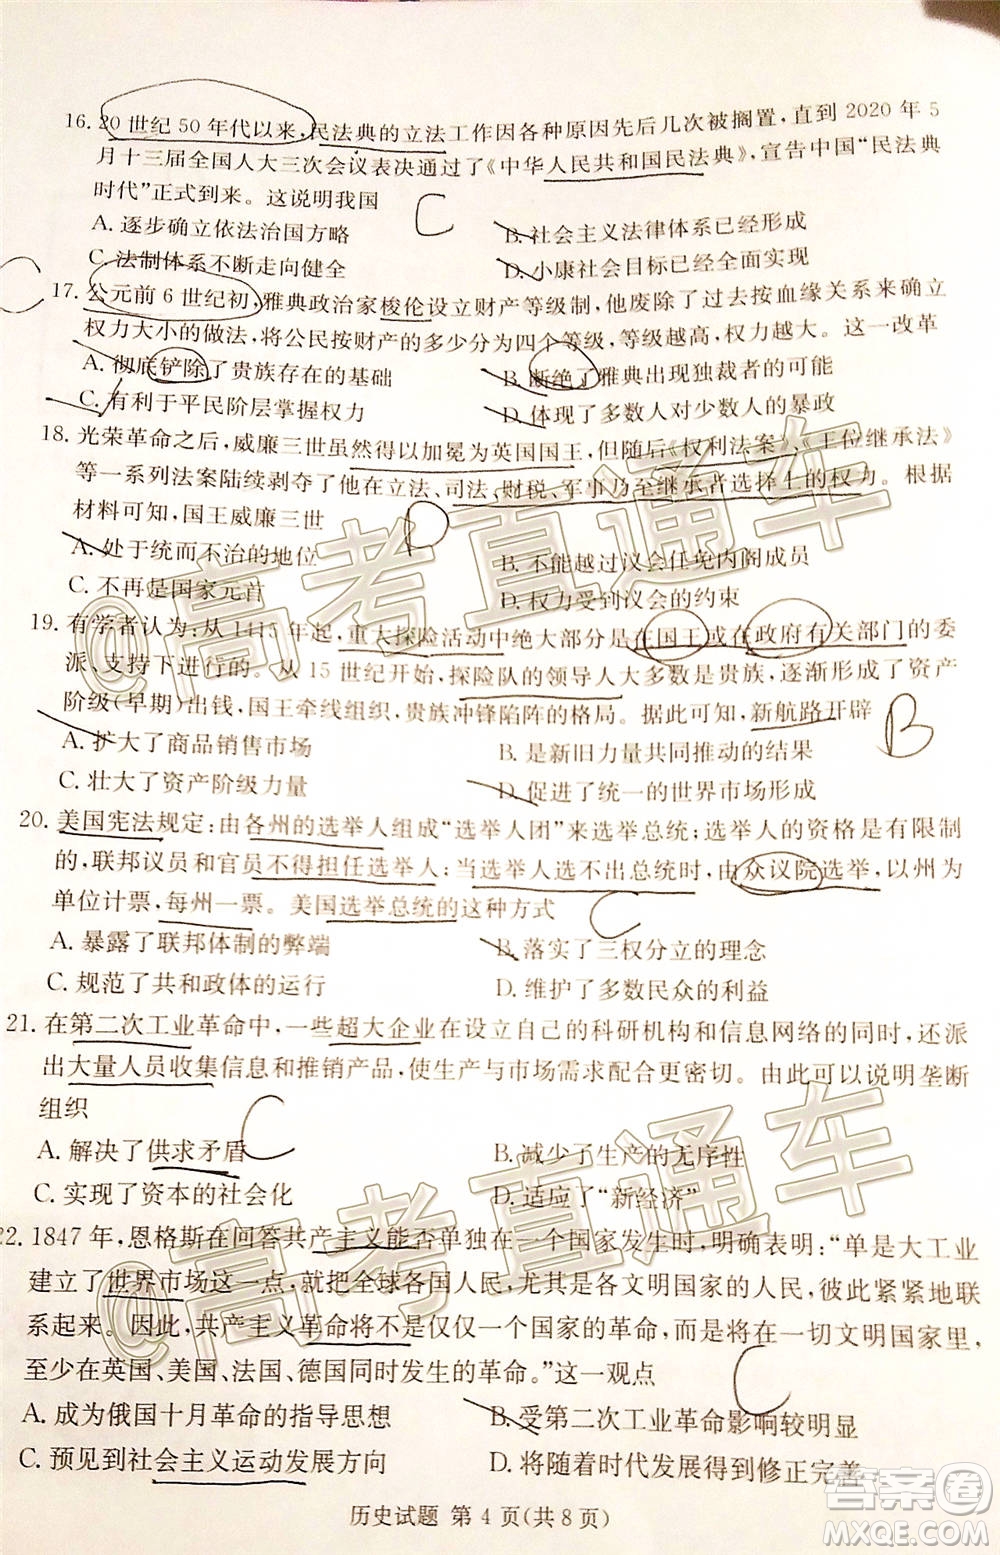 16. 20 世纪 50 年代以来，民法典的立法工作因各种原因先后几次被搁置，直到 2020 年 5
月十三届全国人大三次会议表决通过了《中华人民共和国民法典》，宣告中国“民法典
时代”正式到来。这说明我国
C
A. 逐步确立依法治国方略
B. 社会主义法律体系已经形成
C. 法制体系不断走向健全
D. 小康社会目标已经全面实现
C
17. 公元前 6 世纪初，雅典政治家梭伦设立财产等级制，他废除了过去按血缘关系来确立
权力大小的做法，将公民按财产的多少分为四个等级，等级越高，权力越大。这一改革
A. 彻底铲除了贵族存在的基础
B. 断绝了雅典出现独裁者的可能
C. 有利于平民阶层掌握权力
D. 体现了多数人对少数人的暴政
18. 光荣革命之后，威廉三世虽然得以加冕为英国国王，但随后《权利法案》《王位继承法》
等一系列法案陆续剥夺了他在立法、司法、财税、军事乃至继承者选择上的权力。根据
材料可知，国王威廉三世
D
A. 处于统而不治的地位
B. 不能越过议会任免内阁成员
C. 不再是国家元首
D. 权力受到议会的约束
19. 有学者认为：从 1415 年起，重大探险活动中绝大部分是在国王或在政府有关部门的委
派、支持下进行的。从 15 世纪开始，探险队的领导人大多数是贵族，逐渐形成了资产
阶级（早期）出钱，国王牵线组织，贵族冲锋陷阵的格局。据此可知，新航路开辟
B
A. 扩大了商品销售市场
B. 是新旧力量共同推动的结果
C. 壮大了资产阶级力量
D. 促进了统一的世界市场形成
20. 美国宪法规定：由各州的选举人组成“选举人团”来选举总统；选举人的资格是有限制
的，联邦议员和官员不得担任选举人；当选举人选不出总统时，由众议院选举，以州为
单位计票，每州一票。美国选举总统的这种方式
C
A. 暴露了联邦体制的弊端
B. 落实了三权分立的理念
C. 规范了共和政体的运行
D. 维护了多数民众的利益
21. 在第二次工业革命中，一些超大企业在设立自己的科研机构和信息网络的同时，还派
出大量人员收集信息和推销产品，使生产与市场需求配合更密切。由此可以说明垄断
组织
C
A. 解决了供求矛盾
B. 减少了生产的无序性
C. 实现了资本的社会化
D. 适应了“新经济”
22. 1847 年，恩格斯在回答共产主义能否单独在一个国家发生时，明确表明：“单是大工业
建立了世界市场这一点，就把全球各国人民，尤其是各文明国家的人民，彼此紧紧地联
系起来。因此，共产主义革命将不是仅仅一个国家的革命，而是将在一切文明国家里，
至少在英国、美国、法国、德国同时发生的革命。”这一观点
C
A. 成为俄国十月革命的指导思想
B. 受第二次工业革命影响较明显
C. 预见到社会主义运动发展
D. 随着时代发展得到修正完善
历史试题 第 4 页（共 8 页）
@高考直通车
@高考直通车
答案圈
MXQE.COM